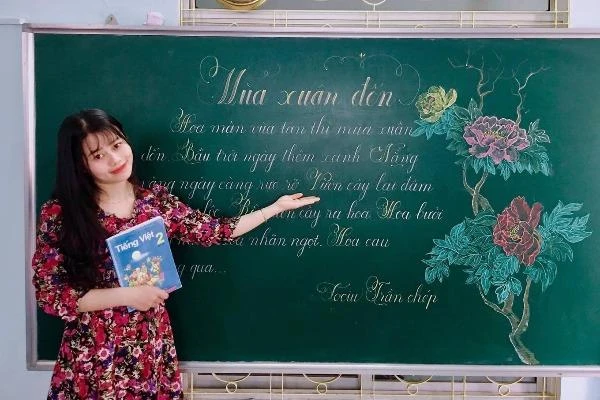 Mùa xuân đến
Hoa mận vừa tàn thì mùa xuân
đến. Bầu trời ngày thêm xanh. Nắng
vàng ngày càng rực rỡ. Vườn cây lại đâm
lộc. Rồi vườn cây ra hoa. Hoa bưởi
nhãn ngọt. Hoa cau
qua...
Trân chép
Tiếng Việt 2